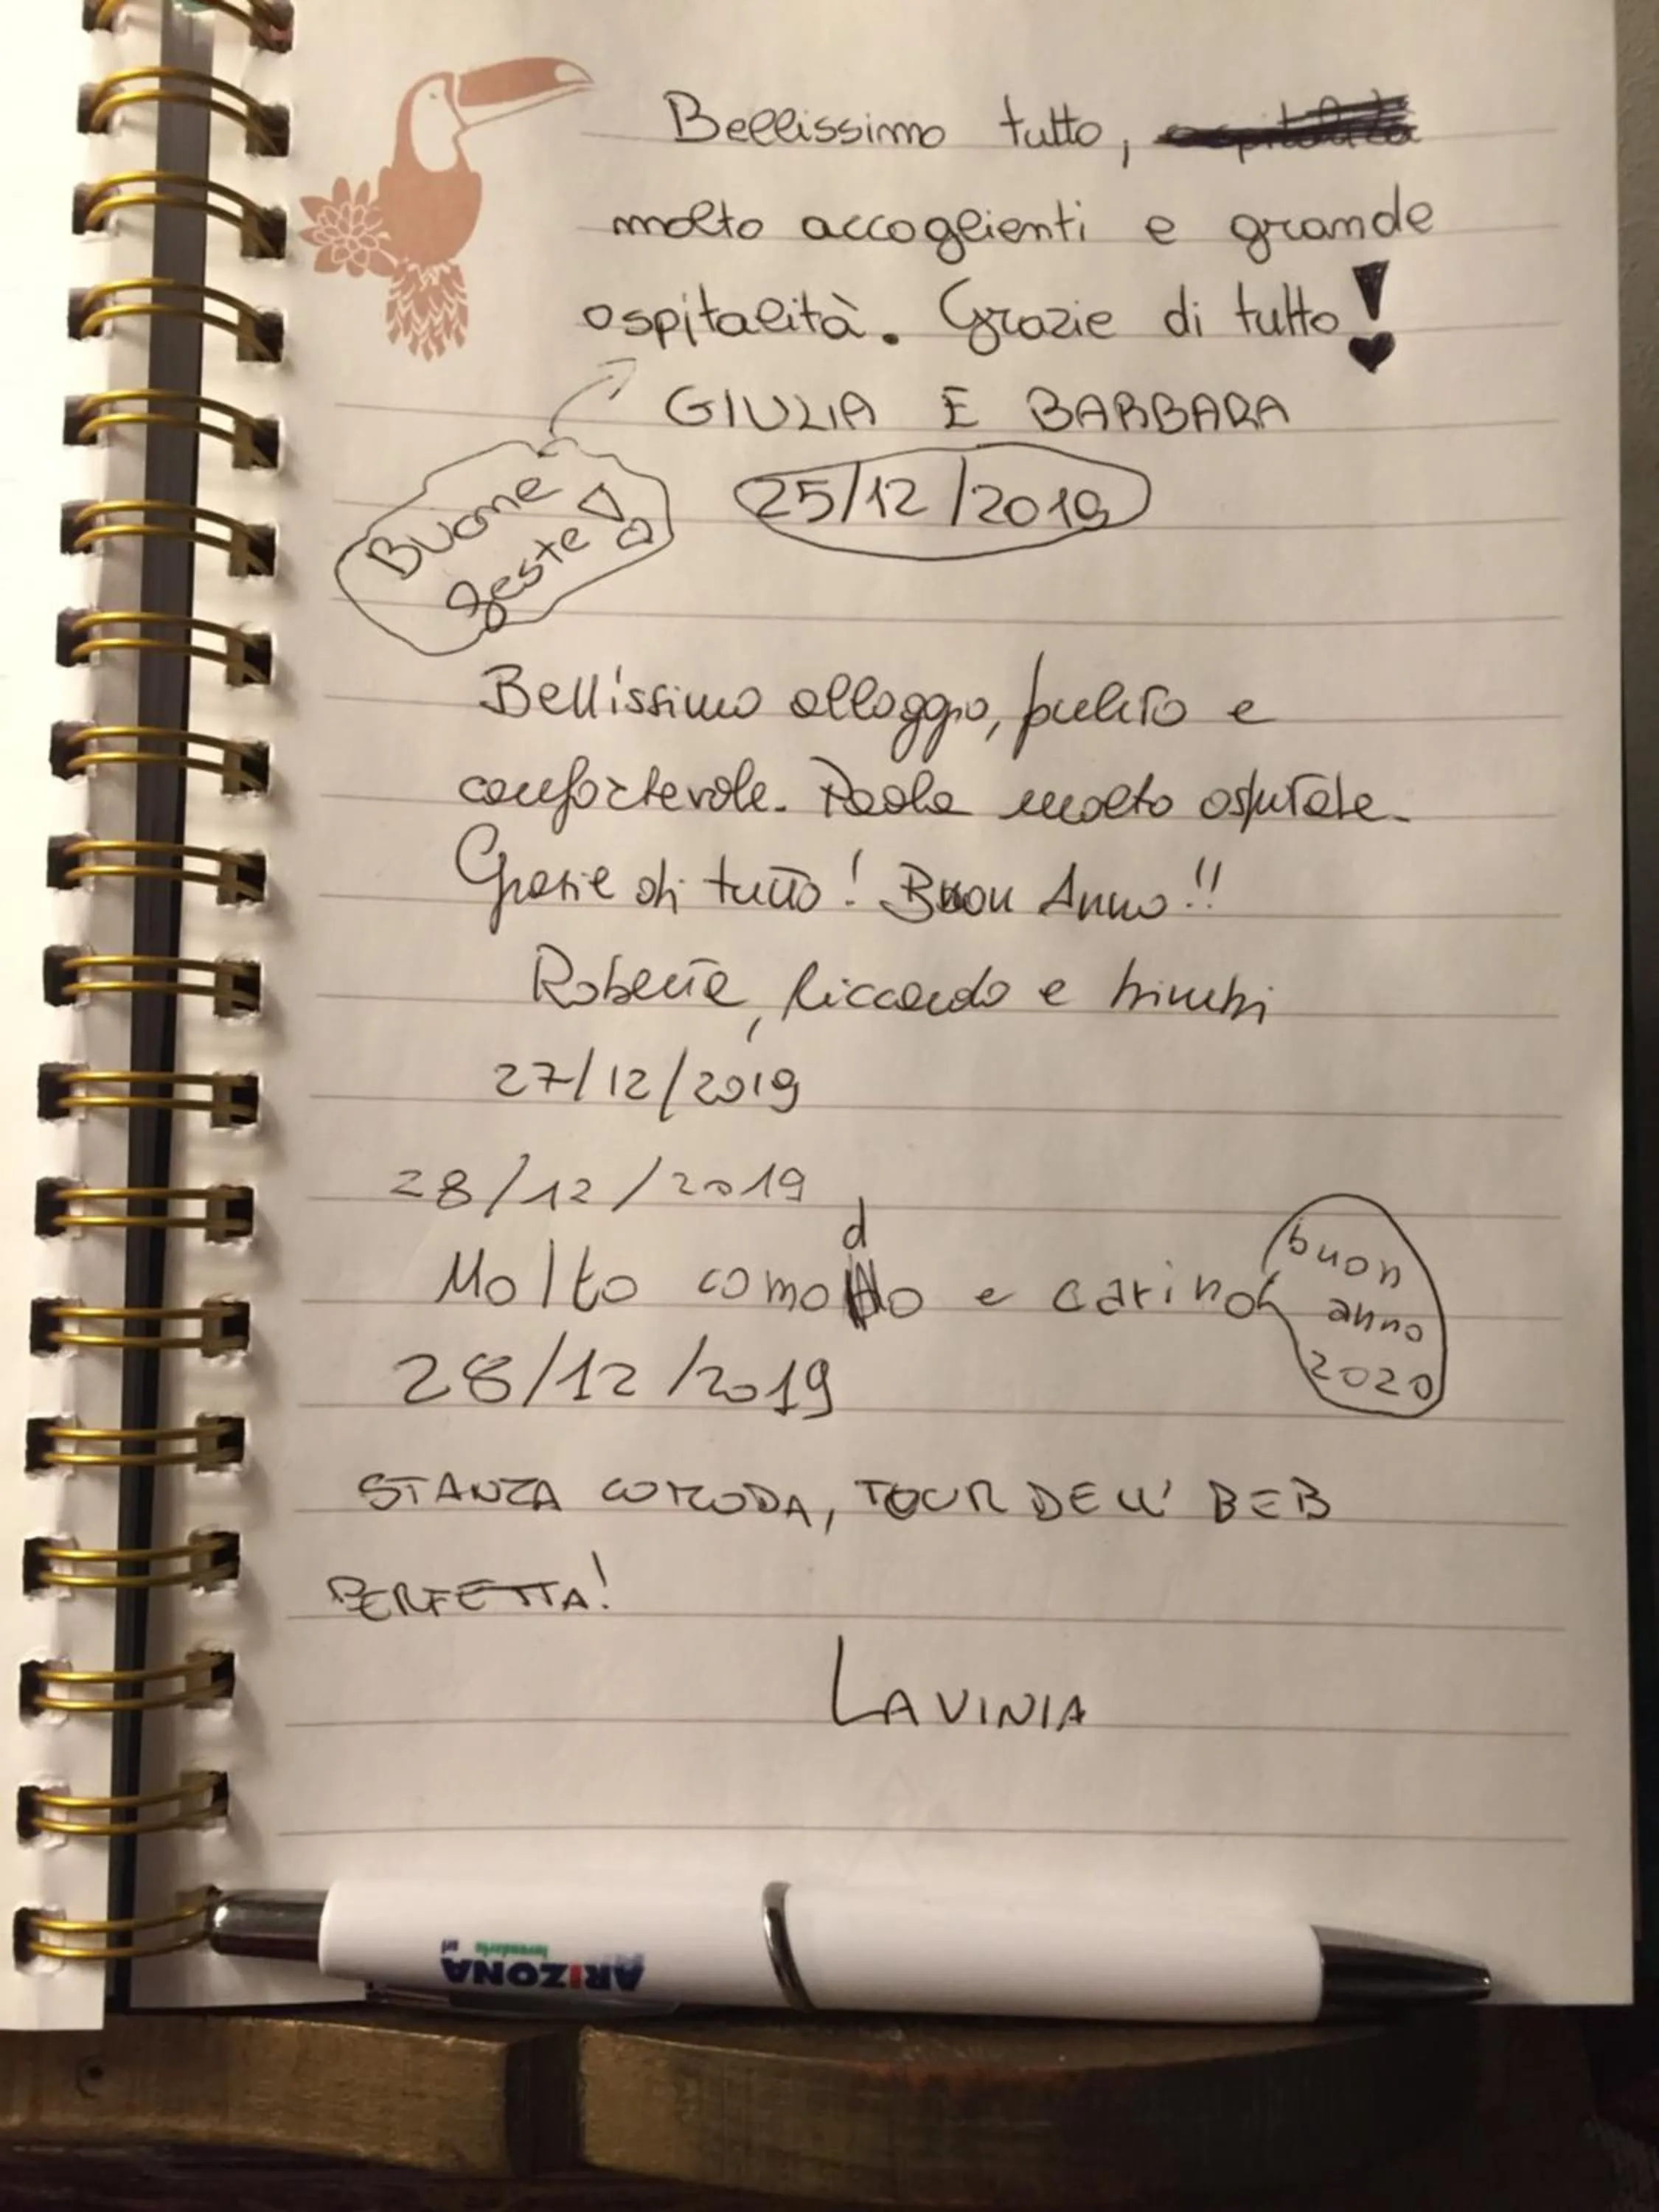 Bellissimo tutto, ospitalità
molto accoglienti e grande
ospitalità. Grazie di tutto!
GIULIA E BARBARA
25/12/2019
Buone
feste!
Bellissimo alloggio, pulito e
confortevole. Paola molto ospitale.
Grazie di tutto! Buon Anno!!
Roberta, Riccardo e bimbi
27/12/2019
28/12/2019
Molto comodo e carino
buon
anno
2020
28/12/2019
STANZA COMODA, TOUR DELL' BEB
PERFETTA!
LAVINIA
ARIZONA
lavanderia
srl